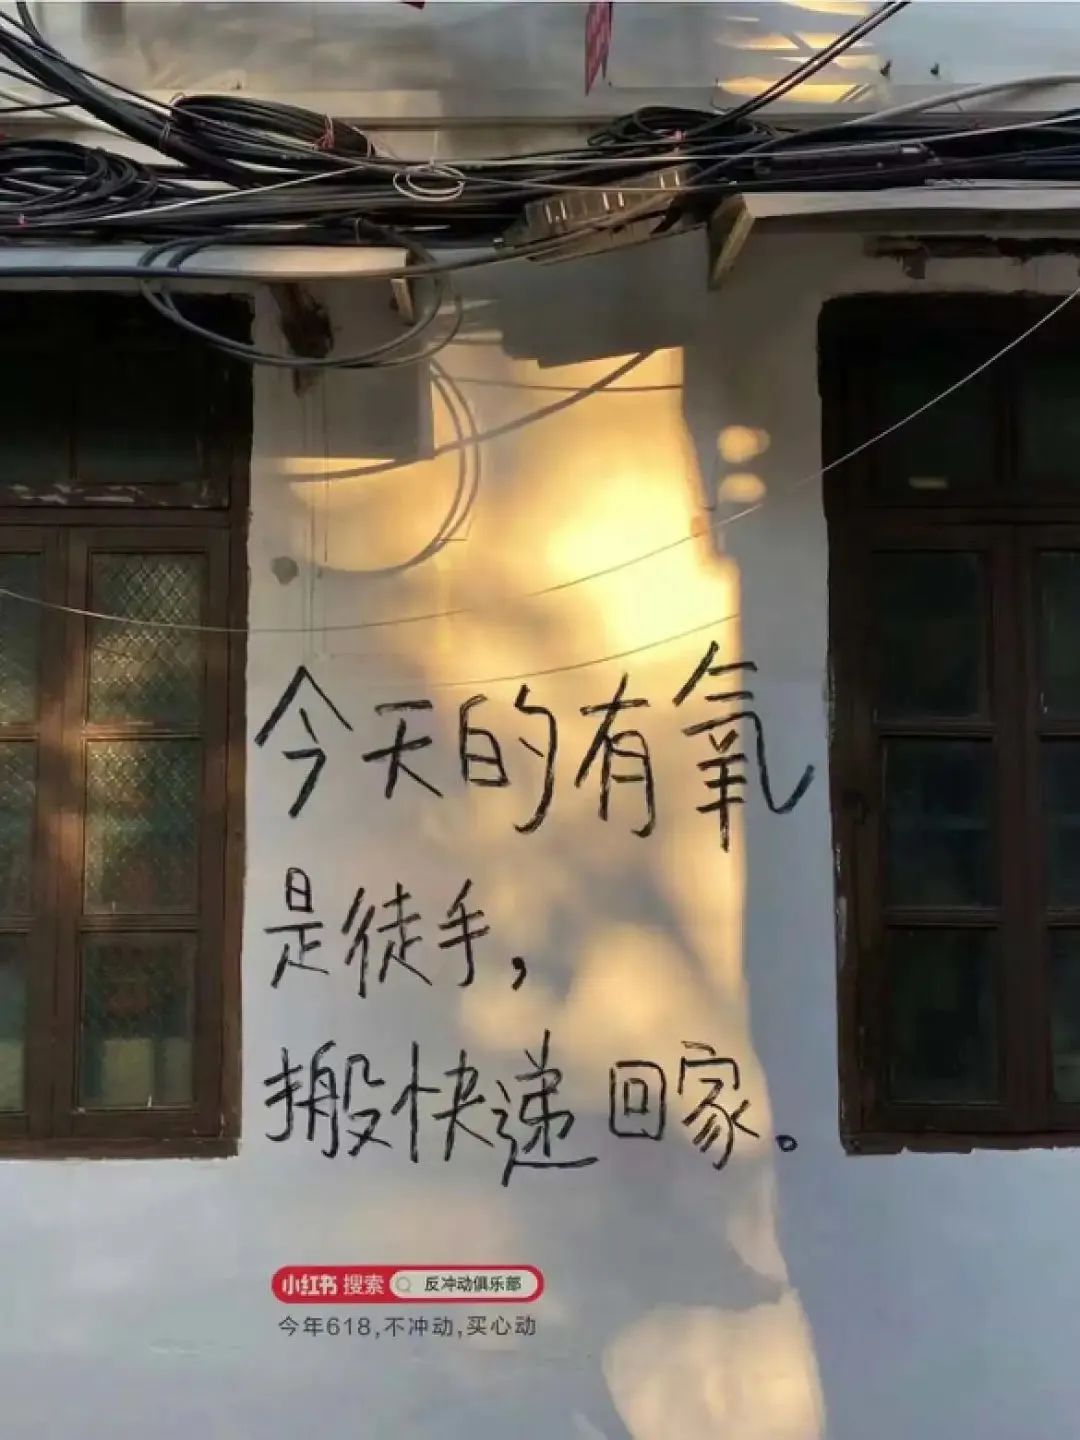 今天的有氧
是徒手，
搬快递回家。
小红书 搜索 反冲动俱乐部
今年618,不冲动,买心动